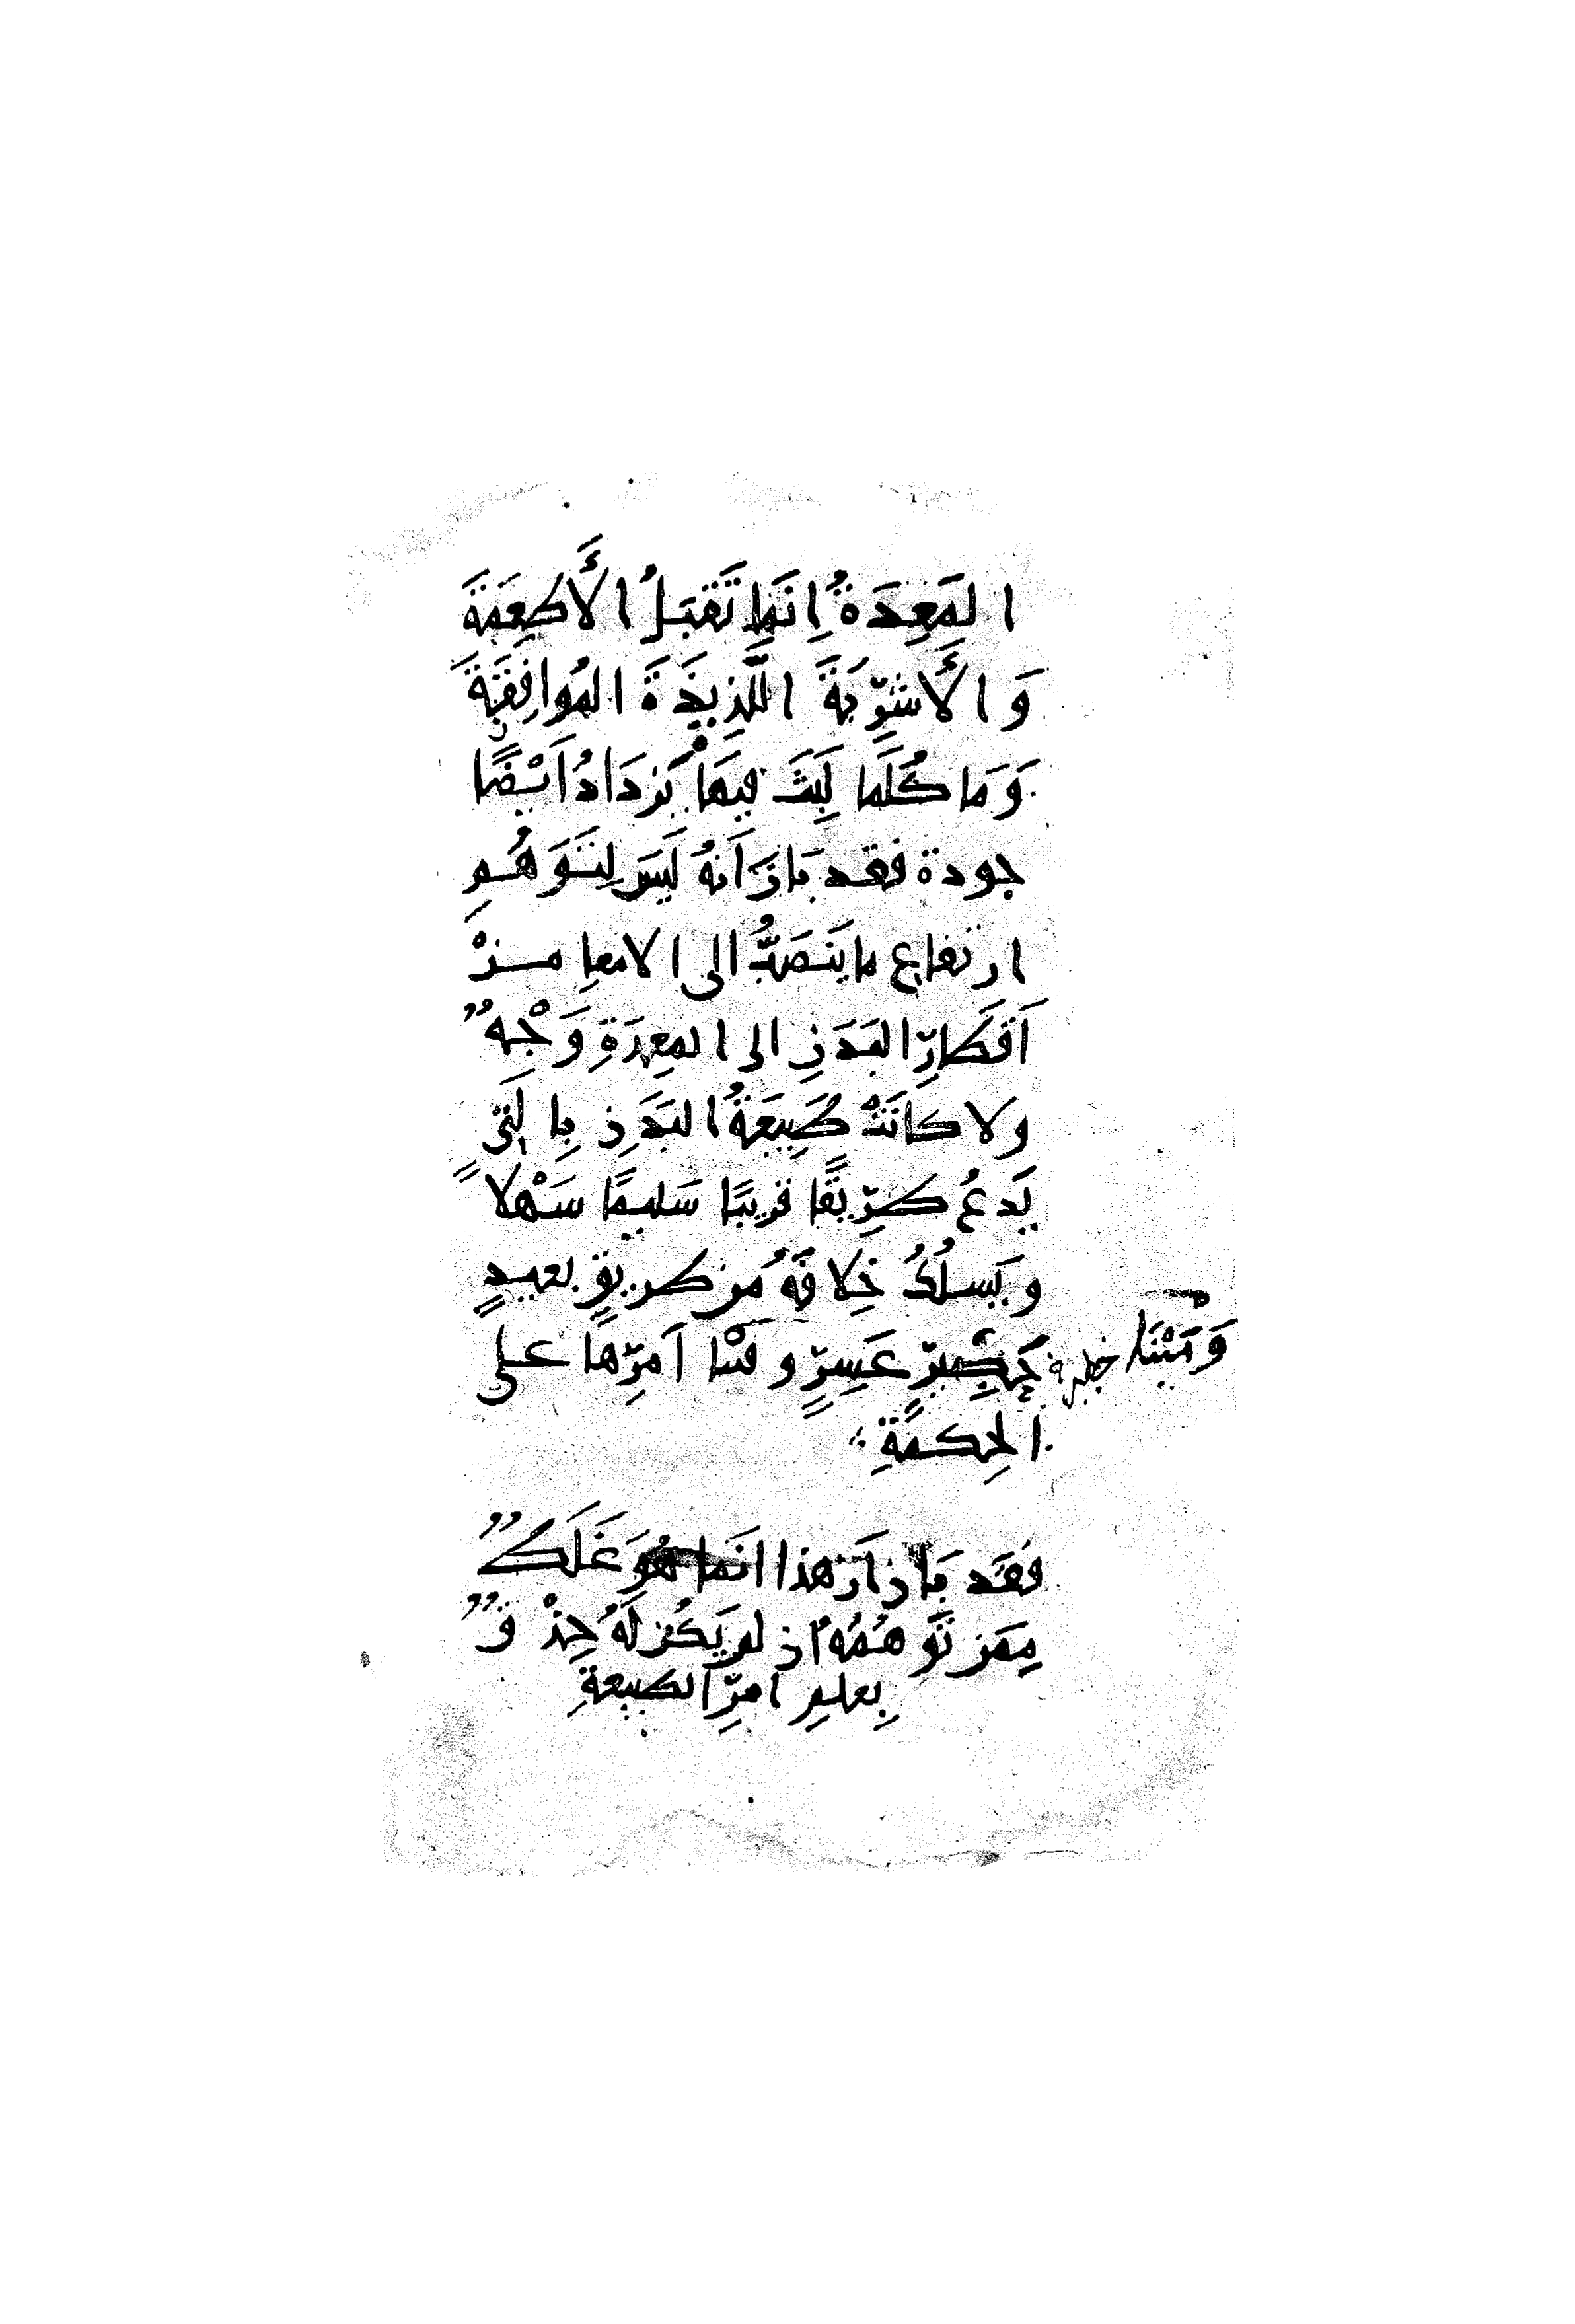 المَعِدَةُ اِنَمَا تَقبَلُ الأَطعِمَةَ
وَ الأَشرِبَةَ اللَّذِيذَةَ المُوَافِقَةَ
وَمَا كُلَمَا لَبِثَ فيهَا يَزدَادُ اَيْضًا
جودة فقد بَانَ اَنهُ لَيسَ لِتَوَهُمِ
ارتفاعِ ما يَنصَبُّ الى الامعاِ مِنْ
اَقطَارِ البَدَنِ الى المعِدَةِ وَجْهٌ
ولا كانَتْ طَبِيعَةُ البَدَنِ بِالَتِي
يَدعُ طَرِيقًا قريبًا سَليمًا سَهْلاً
ويَسلُكُ خِلافَهُ مِن طريقٍ بعيدٍ
خَطِيرٍ عَسِرٍ و اَمرُها على
وَمَبْنَا
الحِكمَةِ
فقَد بَانَ اَن هذا انَما هُوَ غَلَطٌ
مِمَن تَوَهمُهُ اذ لم يَكُن لَهُ حِذْقٌ
بِعلمِ امرِ الطبيعةِ